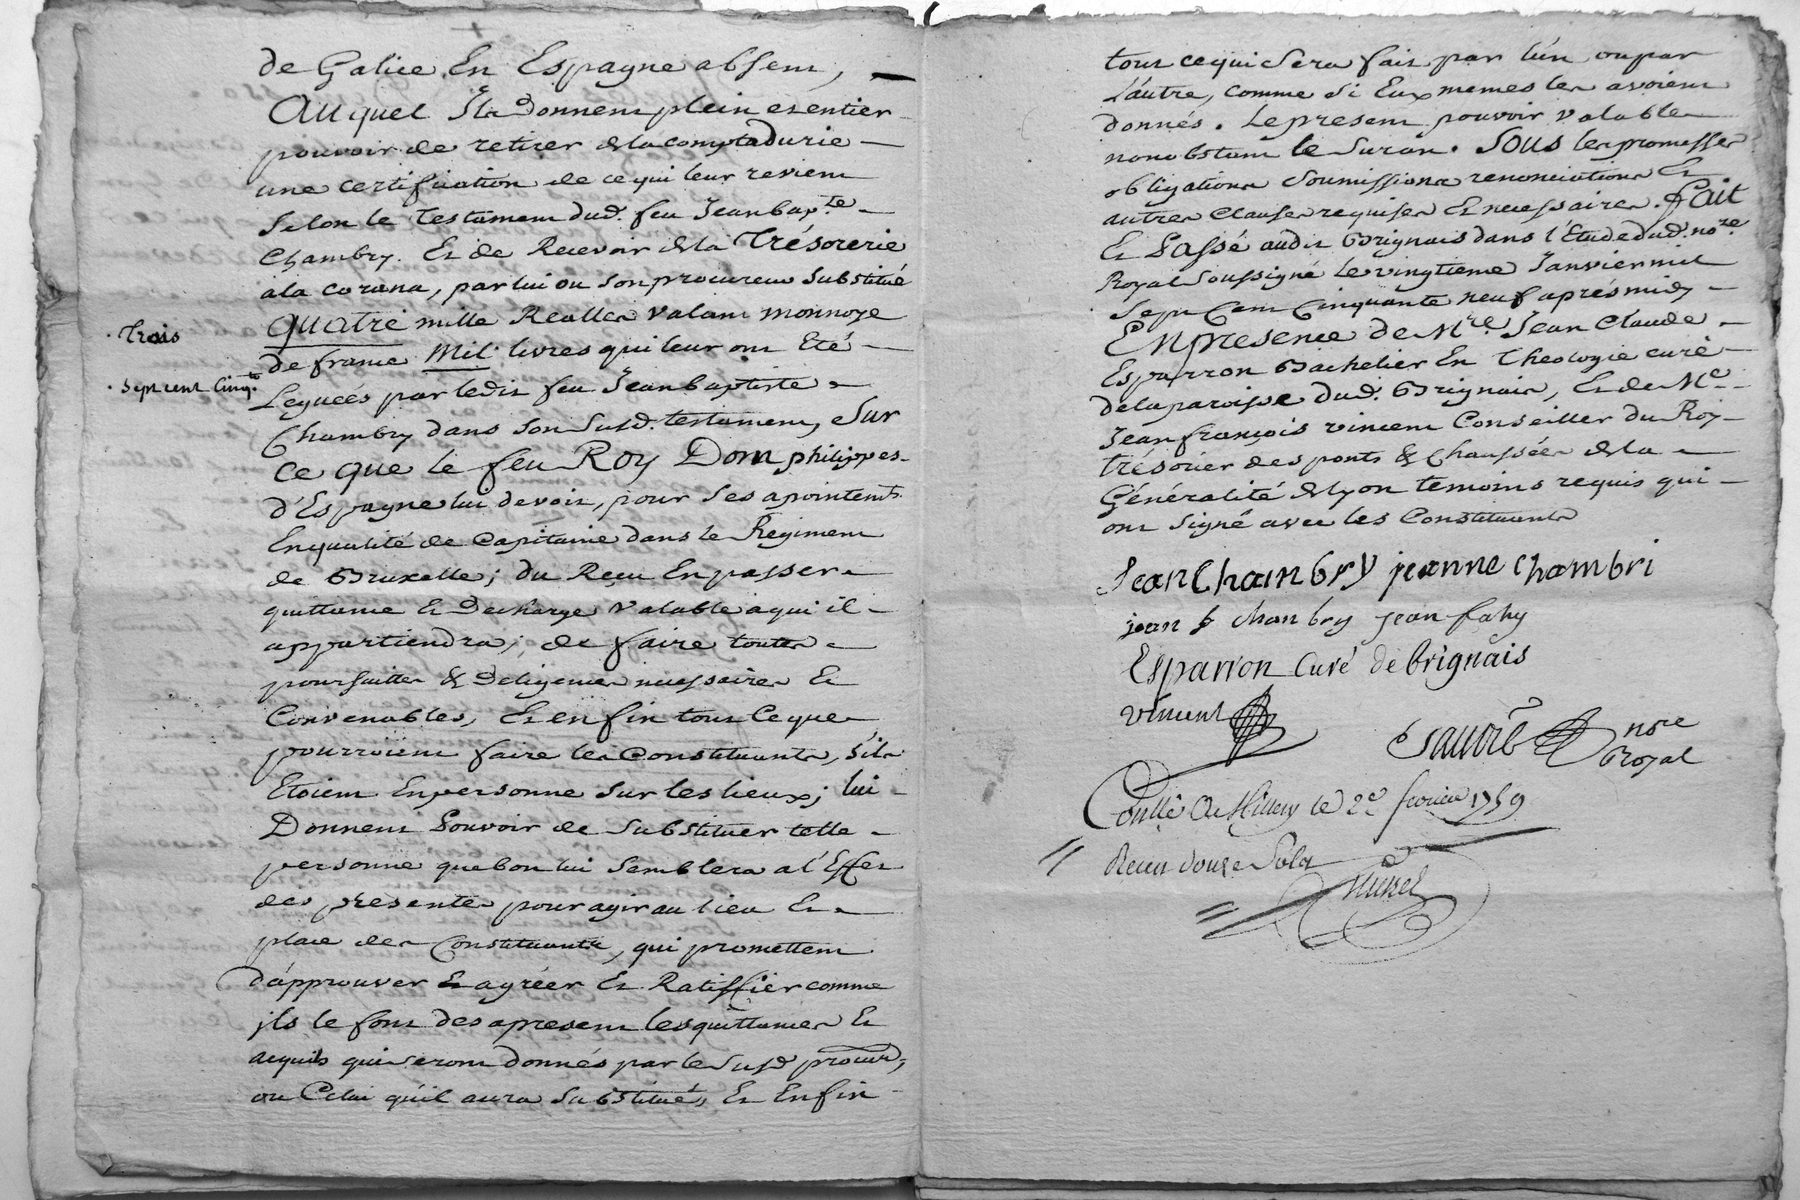 de Galice En Espagne absent,
Auquel Ils donnent plein et entier
pouvoir de retirer de la comptadurie
une certification de ce qui leur revient
Selon le Testament dud. feu Jean bap.te
Chambry. Et de Recevoir de la Trésorerie
à la corona, par lui ou son procureur Substitué
· Trois
quatre mille Realles valant monnoye
de france Mil livres qui leur ont Eté
· Sept cent Cinq.te
Leguées par ledit feu Jean baptiste
Chambry dans son Susd. testament, Sur
ce que le feu Roy Dom philippes
d'Espagne lui devoit, pour Ses apointemts
En qualité de Capitaine dans le Regiment
de Bruxelle; du Reçu En passer
quittance Et Decharge valable a qui il
appartiendra; de faire toutes
poursuittes & Deligences necessaires Et
Convenables, Et enfin tout Ce que
pourroient faire les Constituants, S'ils
Etoient En personne Sur les lieux; lui
Donnent Pouvoir de Substituer telle
personne que bon lui Semblera a l'Effet
des présentes pour agir au lieu Et
place des Constituants, qui promettent
d'approuver Et agréer Et Ratiffier comme
ils le font des apresent les quittances Et
acquits qui Seront donnés par le Susd procur,
ou Celui qu'il aura Substitué, Et Enfin
tout ce qui Sera fait par l'un ou par
L'autre, comme Si Eux memes les avoient
donnés. Le present pouvoir valable
nonobstant le Suran. Sous les promesses
obligations Soumissions renonciations Et
autres Clauses requises Et necessaires. Fait
Et Passé audit Brignais dans l'Etude dud. no.re
Royal Soussigné Le vingtieme Janvier mil
Sept Cent Cinquante neuf aprés midy
En presence de M.re Jean Claude
Esparron Bachelier En Theologie curé
de la paroisse dud. Brignais, Et de M.e
Jean françois vincent Conseiller du Roy
trésorier des ponts & Chaussées de la
Généralité de Lyon temoins requis qui
ont Signé avec les Constituants
Jean Chambry jeanne Chambri
jean b chanbry jean fahy
Esparron Curé de brignais
vincent
nore
Royal
Conllé A Millery le 2e fevrier 1759
Recu douze Sols